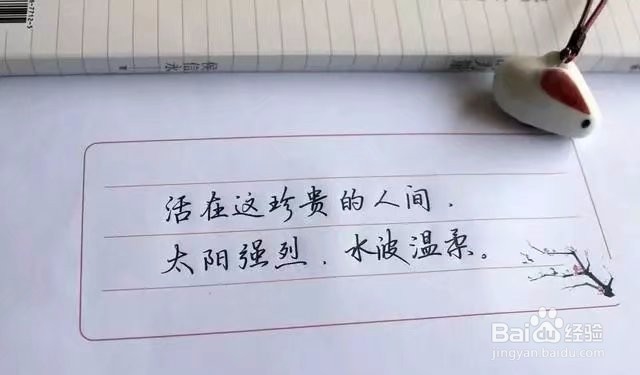 活在这珍贵的人间，
太阳强烈，水波温柔。
Baidu经验
jingyan.baidu.com